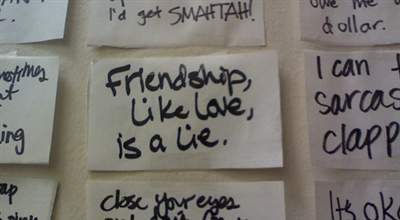 I'd get SMAHTAH!
owe me
dollar.
Friendship,
Like Love,
is a lie.
I can
sarcas
clapp
ing
close your eyes
It's ok